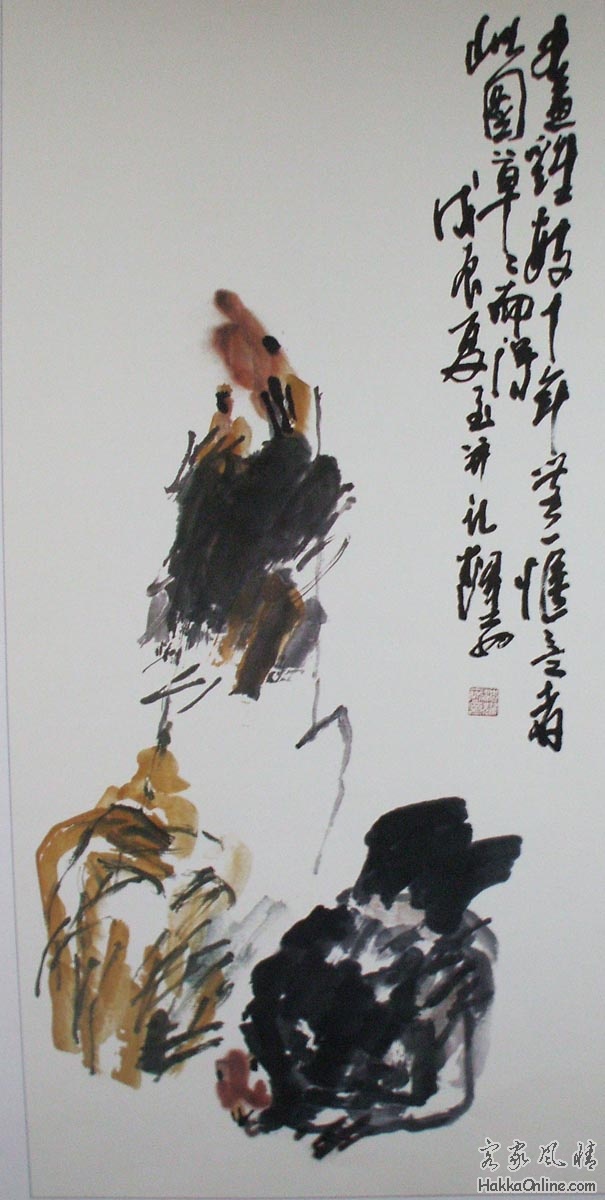 畫雞數十年無一愜意者
此圖草草而得
戊辰夏至并記
客家風情
HakkaOnline.com